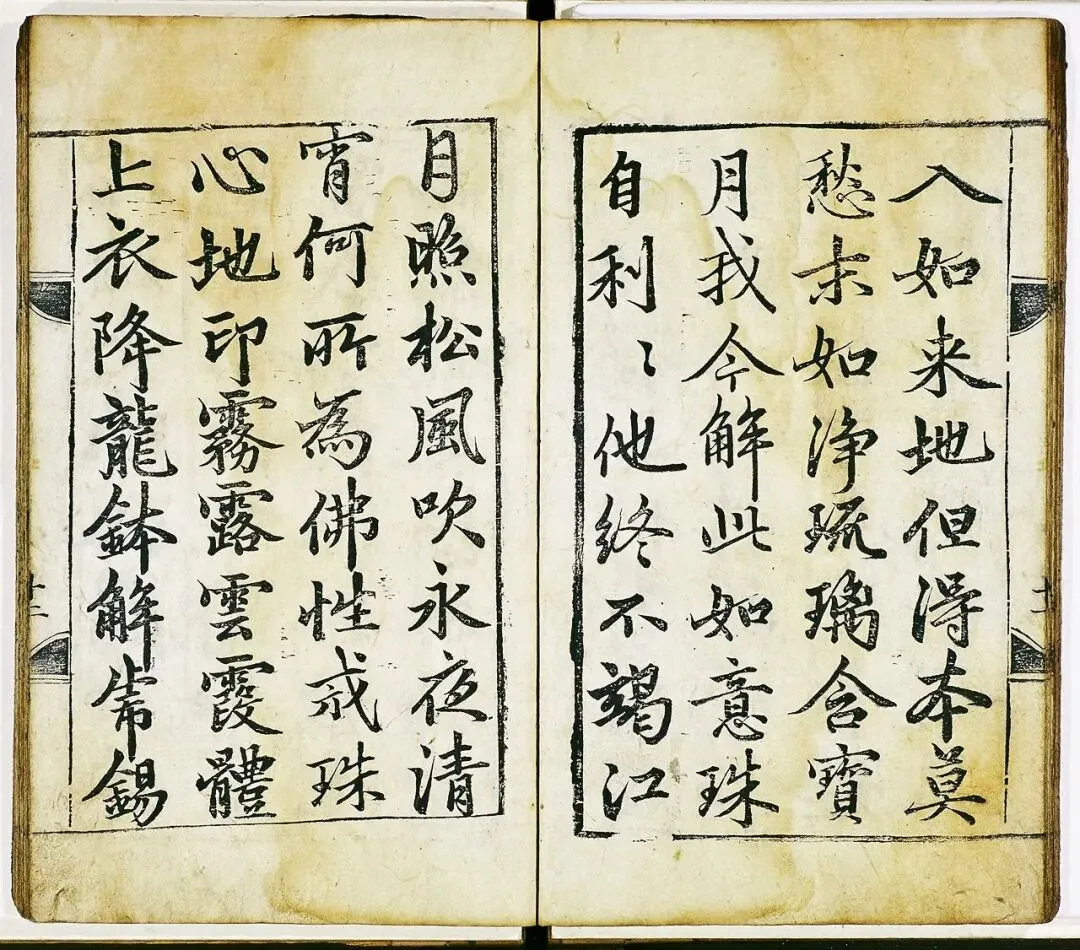 入如来地但得本莫
愁末如浄琉璃含寶
月我今解此如意珠
自利〻他終不竭江
月照松風吹永夜清
宵何所為佛性戒珠
心地印霧露雲霞體
上衣降龍鉢解虎錫
十二